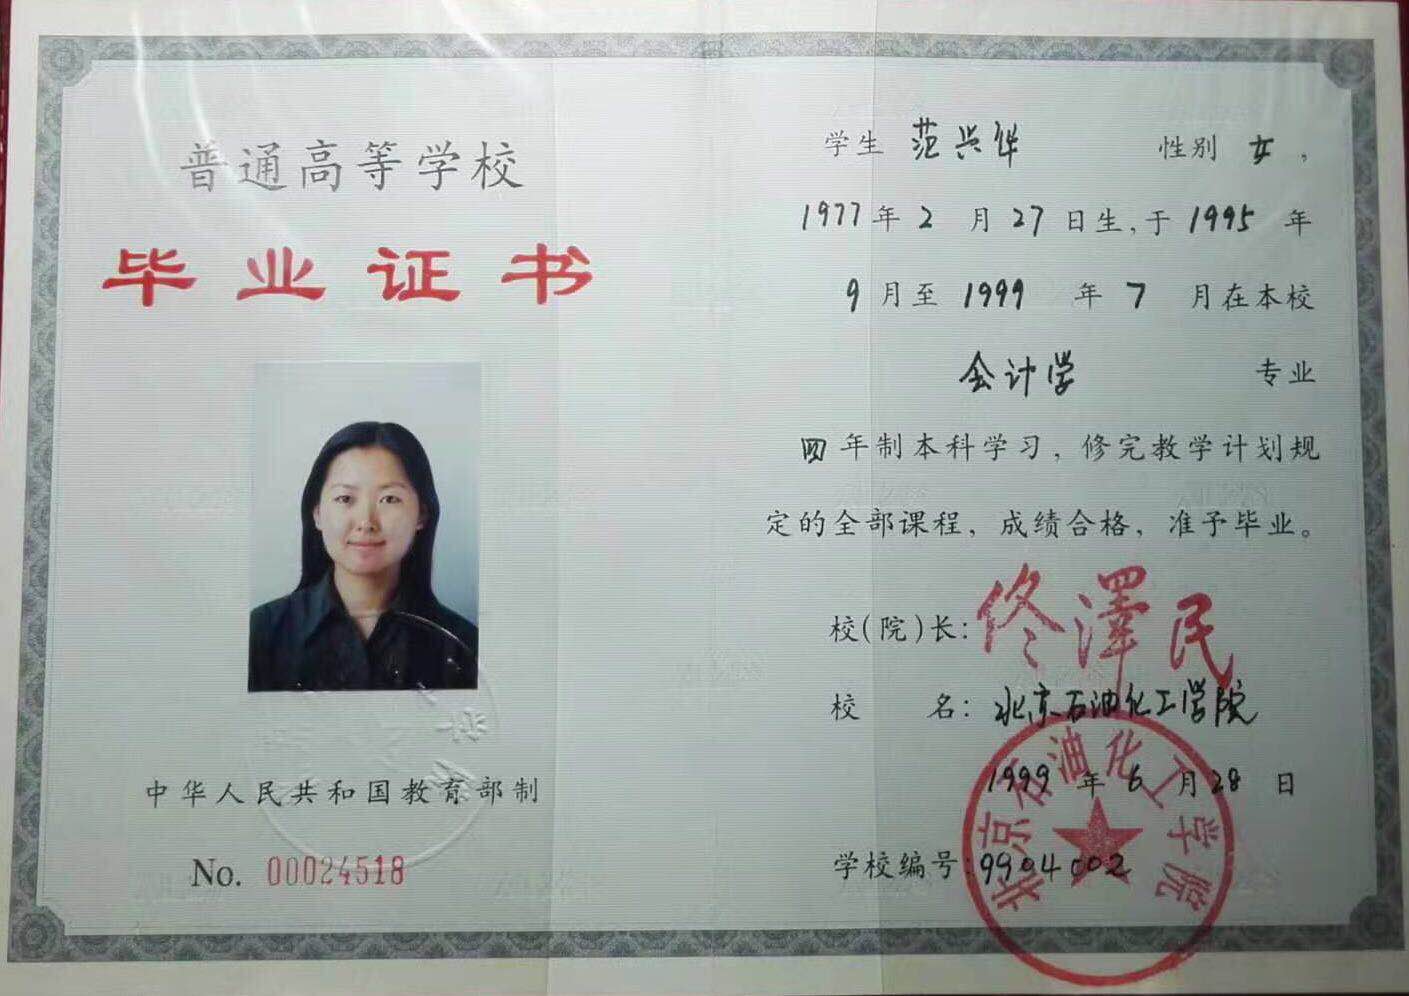 普通高等学校
毕业证书
中华人民共和国教育部制
No. 00024518
学生 范兴华 性别 女，
1977年2月27日生,于1995年
9月至1999年7月在本校
会计学 专业
四年制本科学习，修完教学计划规
定的全部课程，成绩合格，准予毕业。
校(院)长: 佟澤民
校名: 北京石油化工学院
1999年6月28日
学校编号:9904002
北京石油化工学院